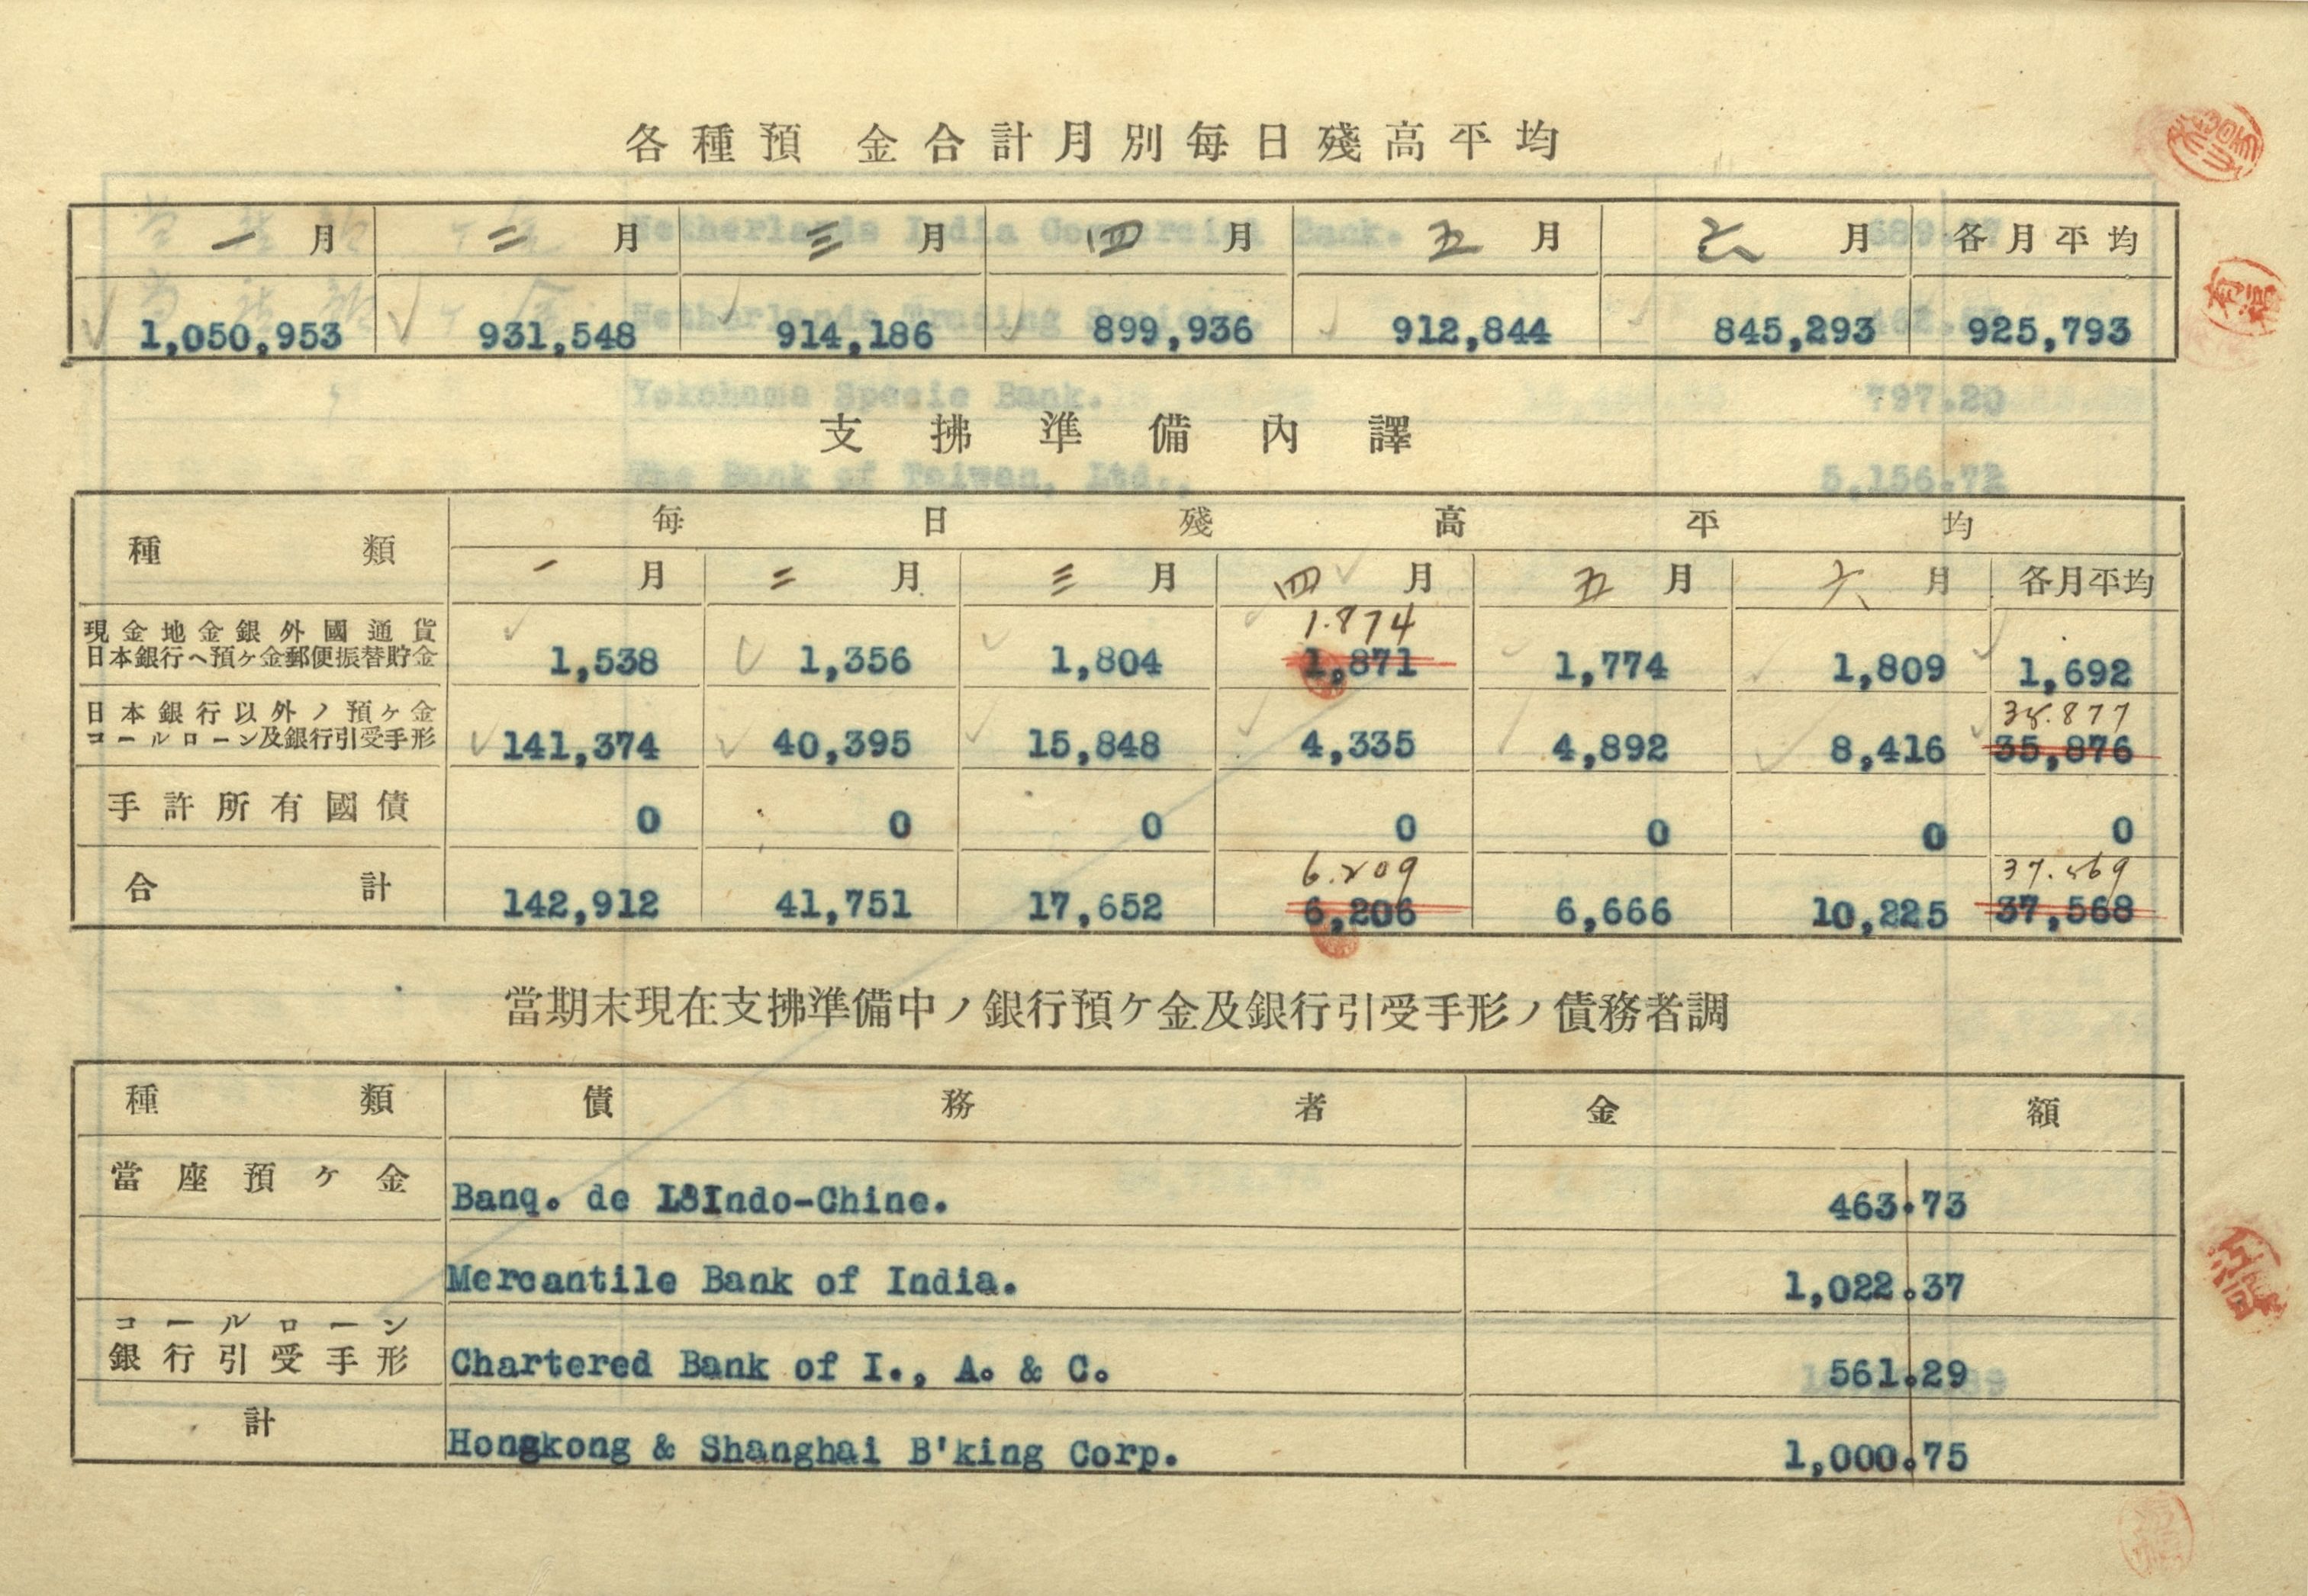 各種預金合計月別每日殘高平均
一月 二月 三月 四月 五月 六月 各月平均
1,050,953 931,548 914,186 899,936 912,844 845,293 925,793
支拂準備內譯
種類 每日殘高平均
一月 二月 三月 四月 五月 六月 各月平均
1.874
現金地金銀外國通貨
日本銀行ヘ預ヶ金郵便振替貯金 1,538 1,356 1,804 1,871 1,774 1,809 1,692
35.877
日本銀行以外ノ預ヶ金
コールローン及銀行引受手形 141,374 40,395 15,848 4,335 4,892 8,416 35,876
手許所有國債 0 0 0 0 0 0 0
6.209 37.569
合計 142,912 41,751 17,652 6,206 6,666 10,225 37,568
當期末現在支拂準備中ノ銀行預ケ金及銀行引受手形ノ債務者調
種類 債務者 金額
當座預ヶ金 Banq. de L'Indo-Chine. 463.73
Mercantile Bank of India. 1,022.37
コールローン
銀行引受手形 Chartered Bank of I., A. & C. 561.29
計 Hongkong & Shanghai B'king Corp. 1,000.75